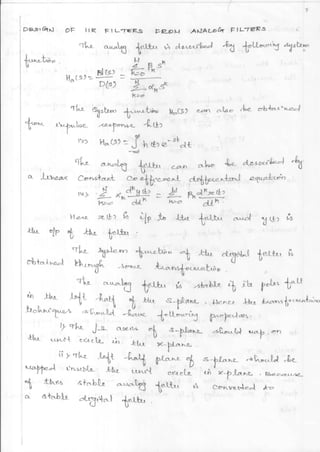 DESIGN OF IIR FILTERS FROM ANALOG FILTERS
The analog filter is described by following system
function.
Ha(s) = N(s)/D(s) = Σ_{k=0}^{M} βk s^k / Σ_{k=0}^{N} αk s^k
The system function Ha(s) can also be obtained
from impulse response h(t)
Ha(s) = ∫ h(t) e^-st dt
The analog filter can also be described by
a linear constant coefficient differential equation.
Σ_{k=0}^{N} αk d^k y(t)/dt^k = Σ_{k=0}^{M} βk d^k x(t)/dt^k
Here x(t) is i/p to the filter and y(t) is
the o/p of the filter.
The system function of the digital filter is
obtained through some transformation.
The analog filter is stable if its poles fall
in the left half of the s-plane. Hence the transformation
techniques should have following properties.
i) The J_Ω axis of s-plane should map on
the unit circle in the z-plane.
ii) The left half plane of s-plane should be
mapped inside the unit circle in z-plane. Because
of this stable analog filter is converted to
a stable digital filter.